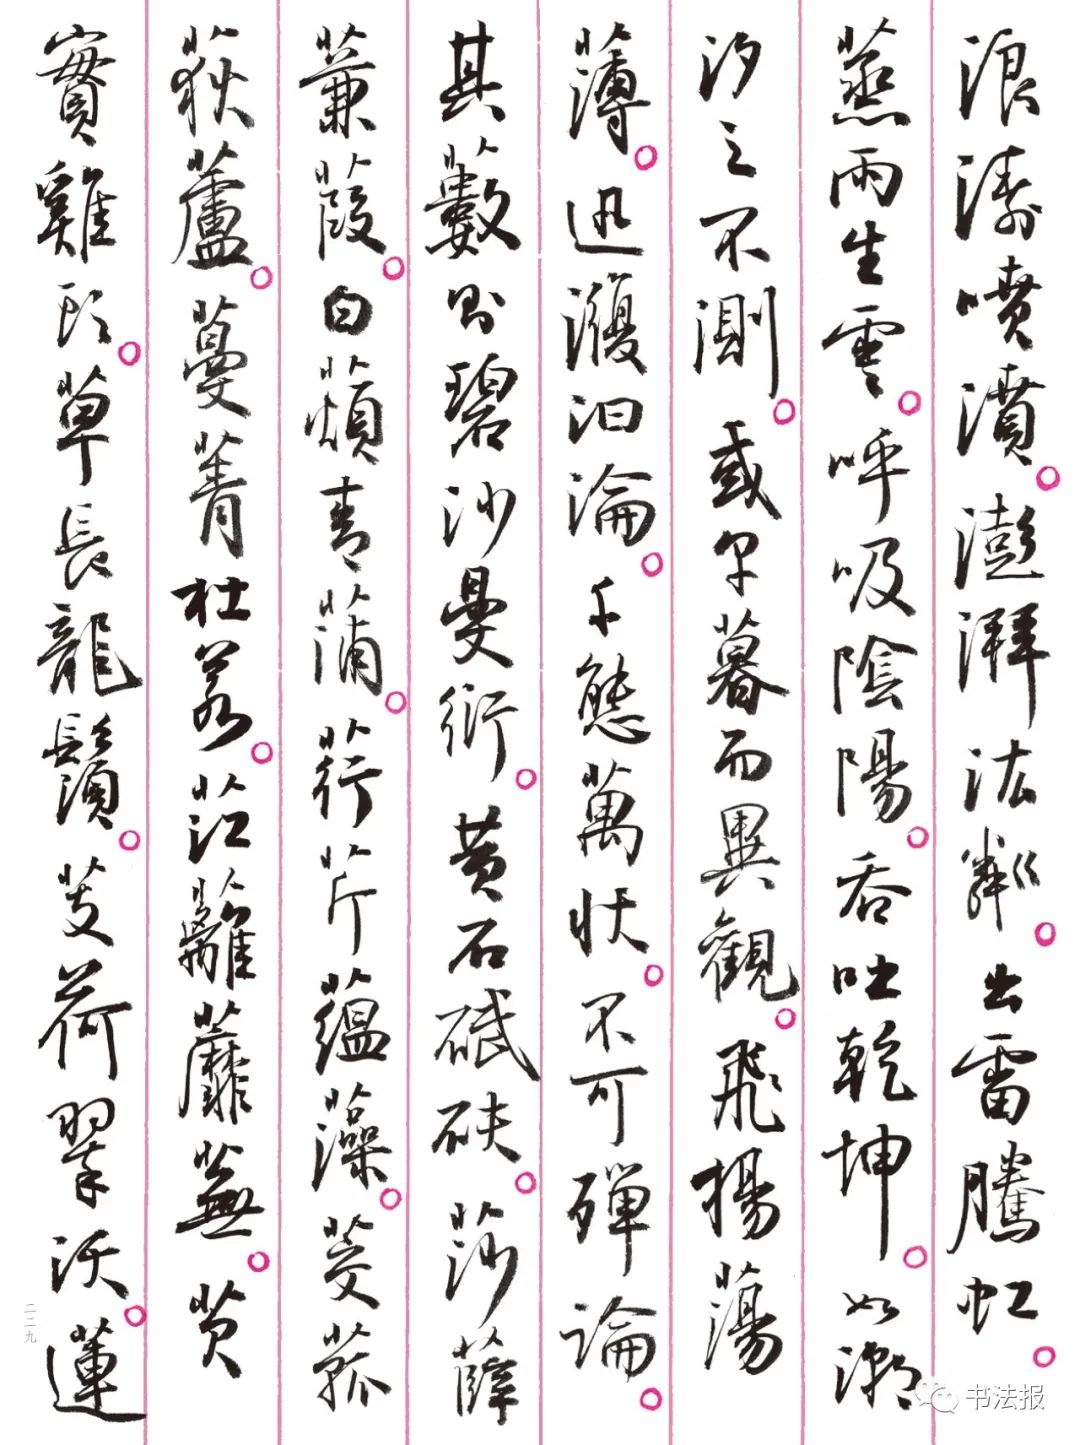 浪濤噴濆。澎湃汯粼。出雷騰虹。
蒸雨生雲。呼吸陰陽。吞吐乾坤。如潮
汐之不測。或早暮而異觀。飛揚蕩
薄。迅澓汩淪。千態萬狀。不可殫論。
其藪則碧沙曼衍。黃石碔砆。莎薛
蒹葭。白薠青蒲。荇芹蕰藻。菱菰
荻蘆。蔓菁杜若。茳蘺蘼蕪。芡
實雞頭。草長龍鬚。芰荷翠沃。蓮
二二九
书法报